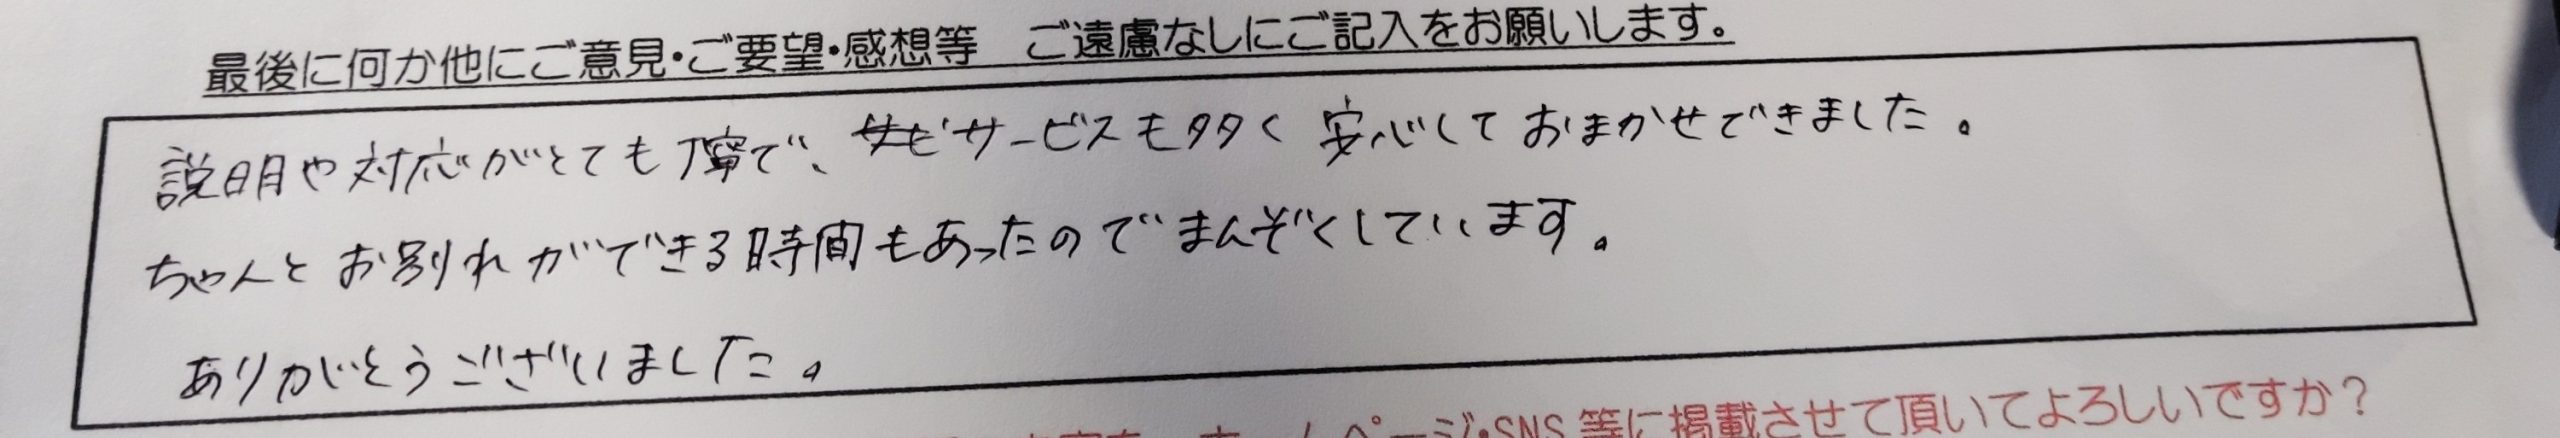 最後に何か他にご意見・ご要望・感想等　ご遠慮なしにご記入をお願いします。
説明や対応がとても丁寧で、サービスも多く 安心しておまかせできました。
ちゃんとお別れができる時間もあったのでまんぞくしています。
ありがとうございました。
ホームページ・SNS 等に掲載させて頂いてよろしいですか？